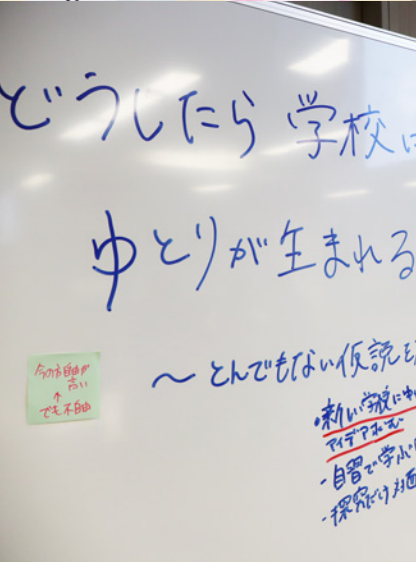 どうしたら 学校に
ゆとりが生まれる
〜とんでもない仮説を
今の方自由が
高い
↑
でも不自由
・新しい学校にゆ
アイデア
・自習で学ぶ
・探究だけ対面